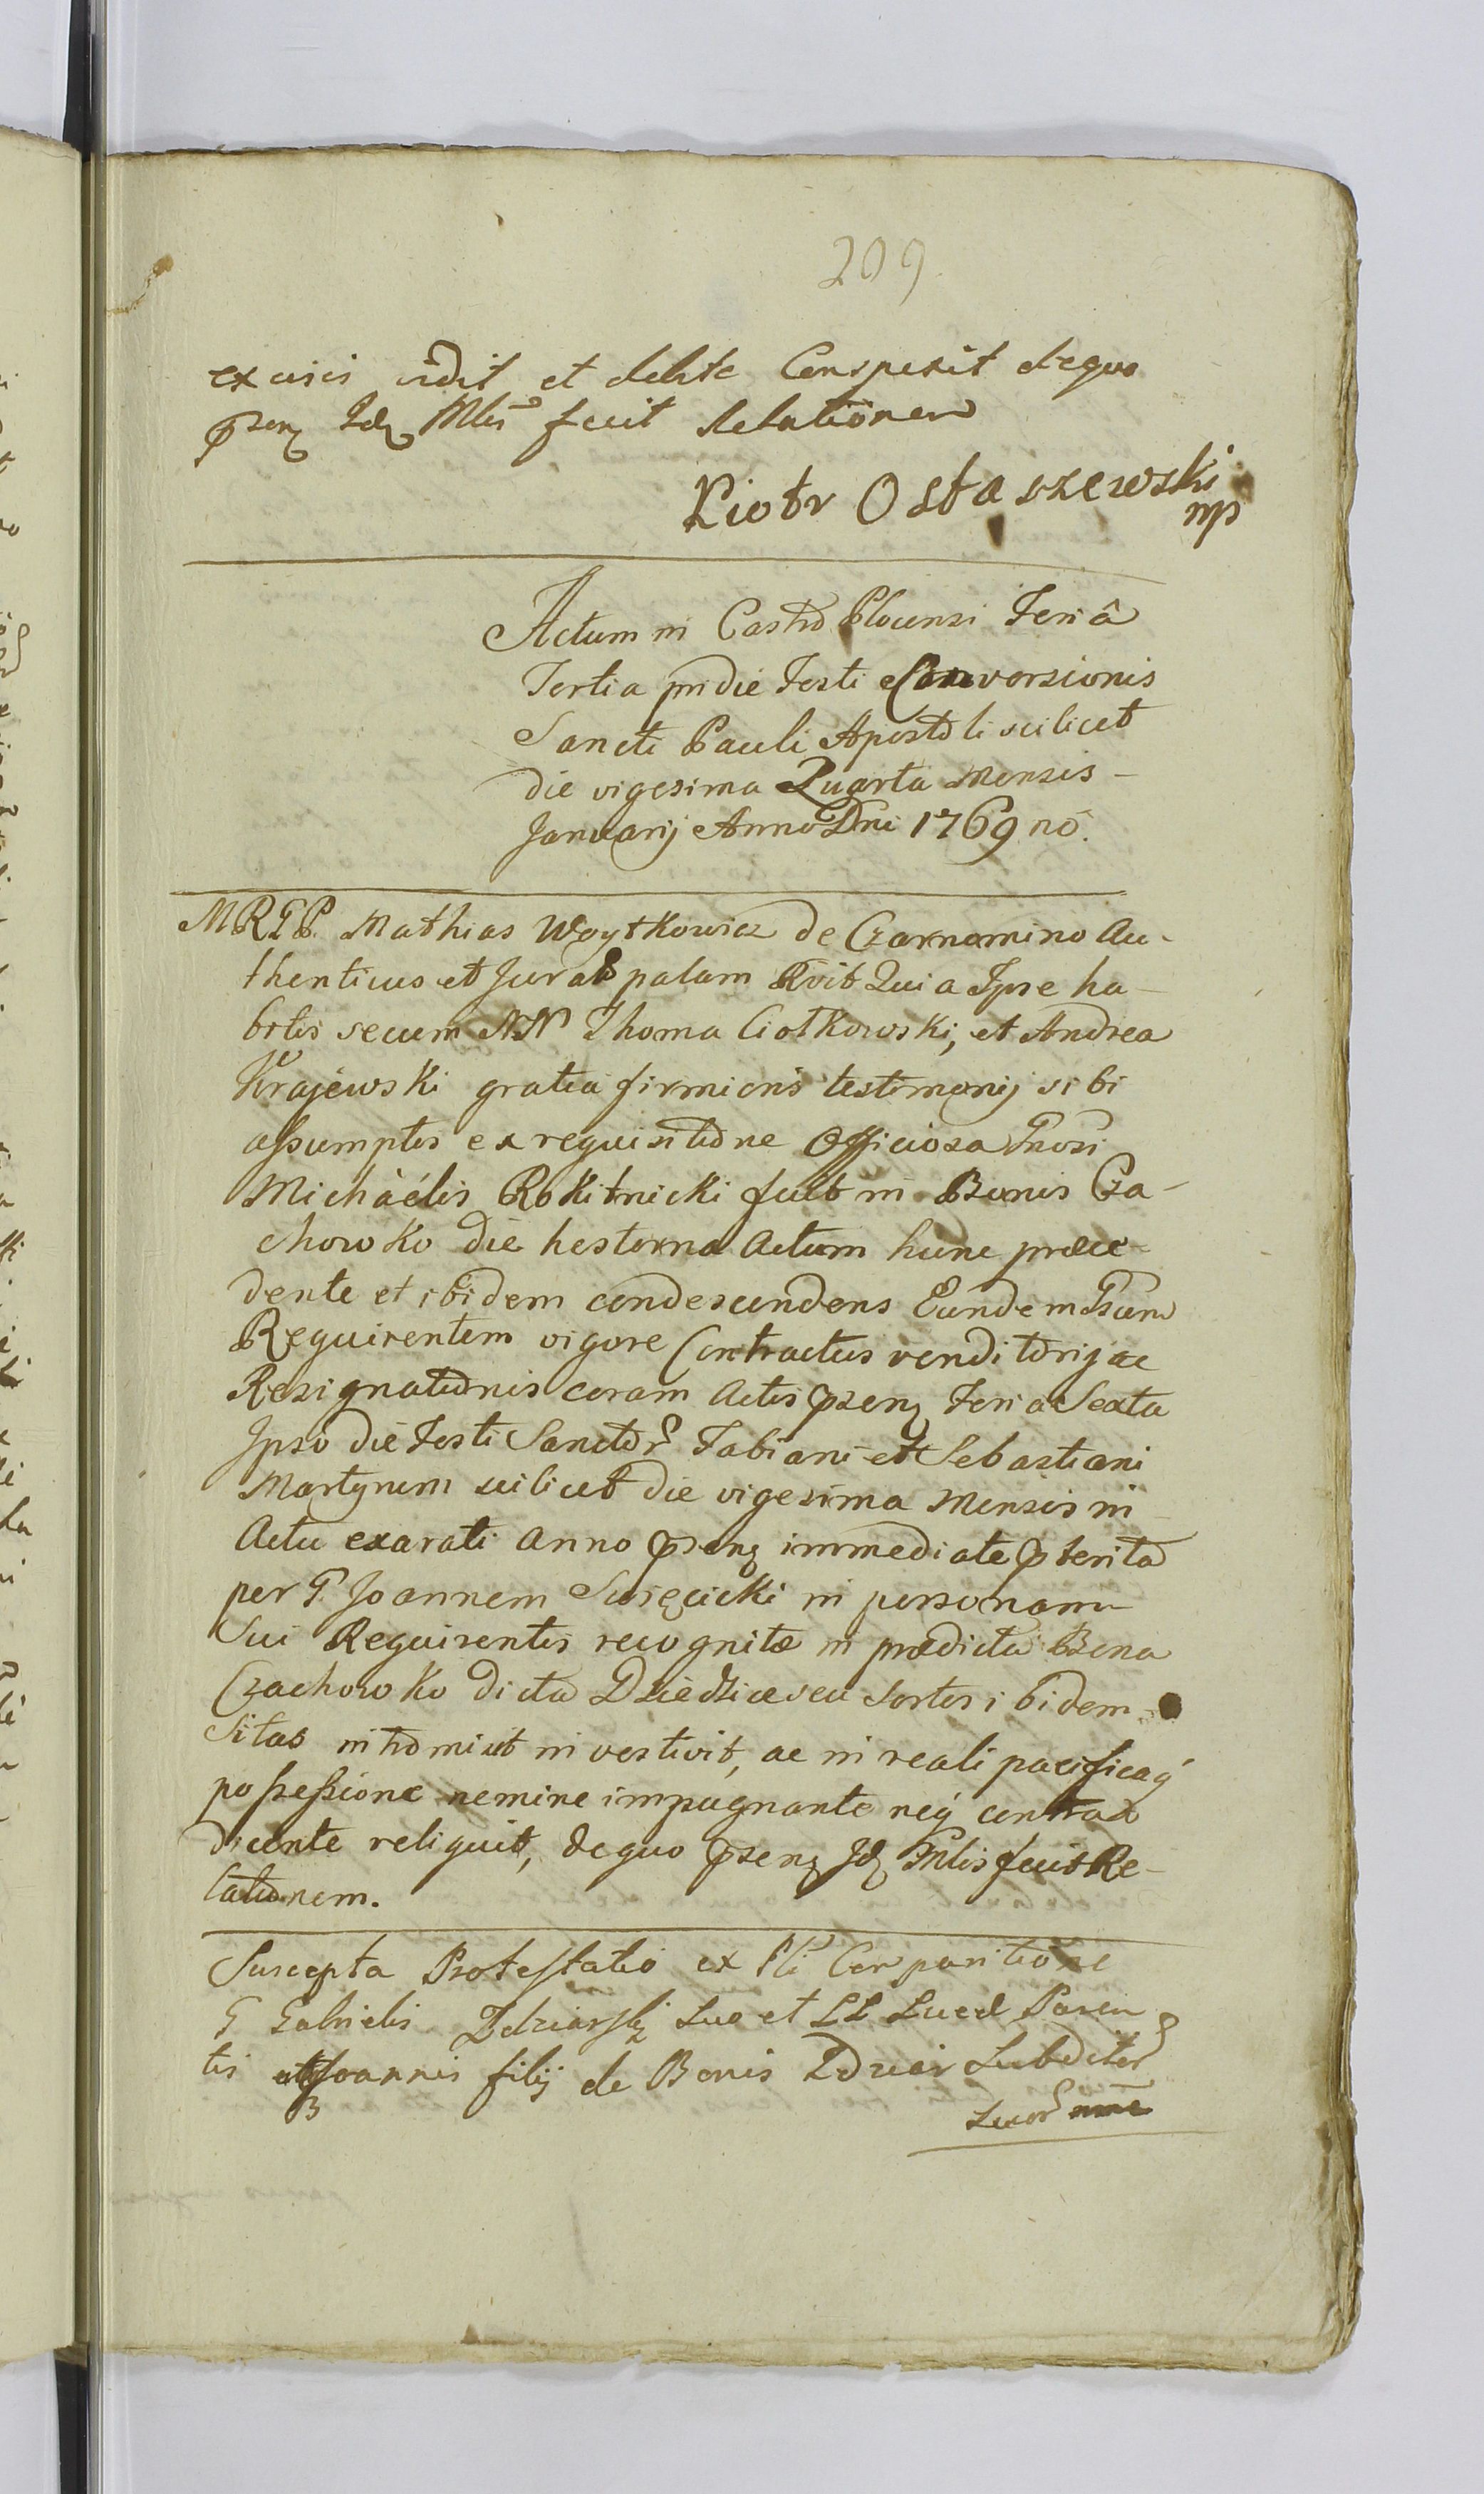 209
ex usis vidit et debite Conspexit de quo
pszen Idq Mlis fecit Relationem
Piotr Ostaszewski
mp
Actum in Castro Plocensi Feriâ
Tertia pridie Festi Conversionis
Sancti Pauli Apostoli scilicet
die vigesima Quarta Mensis
Januarij Anno Dni 1769 no.
MRGP. Mathias Woytkowicz de Czarnomino Au-
thenticus et Jurat palam Rvit Quia Ipse ha-
bitis secum NN Thoma Ciotkowski, et Andrea
Krajewski gratia firmioris testimonij sibi
assumptis ex requisitione Officiosa Gnosi
Michaelis Rokitnicki fuit in Bonis Cza-
chowko die hesterna Actum hunc præce-
dente et ibidem condescendens Eundem Gsum
Requirentem vigore Contractus venditorij ac
Resignationis coram Actis pszen Feria Sexta
Ipso die Festi Sanctor Fabiani et Sebastiani
Martyrum scilicet die vigesima Mensis in
Actu exarati Anno pszen immediate pterito
per G. Joannem Swięcicki in personam
Sui Requirentis recognitæ in prædicta Bona
Czachowko dicta Dziedzice seu sortes ibidem
Sitas intromisit investivit, ac in reali pacificaq
possessione nemine impugnante neq contra
dicente reliquit, de quo pszen Idq Mlis fecit Re-
lationem.
Suscepta Protestatio ex Pli Comparitione
G Gabrielis Zdziarski Suo et LL Sued Paren
tis atq Joannis filij de Bonis Zdziar Subditor
Suor nne